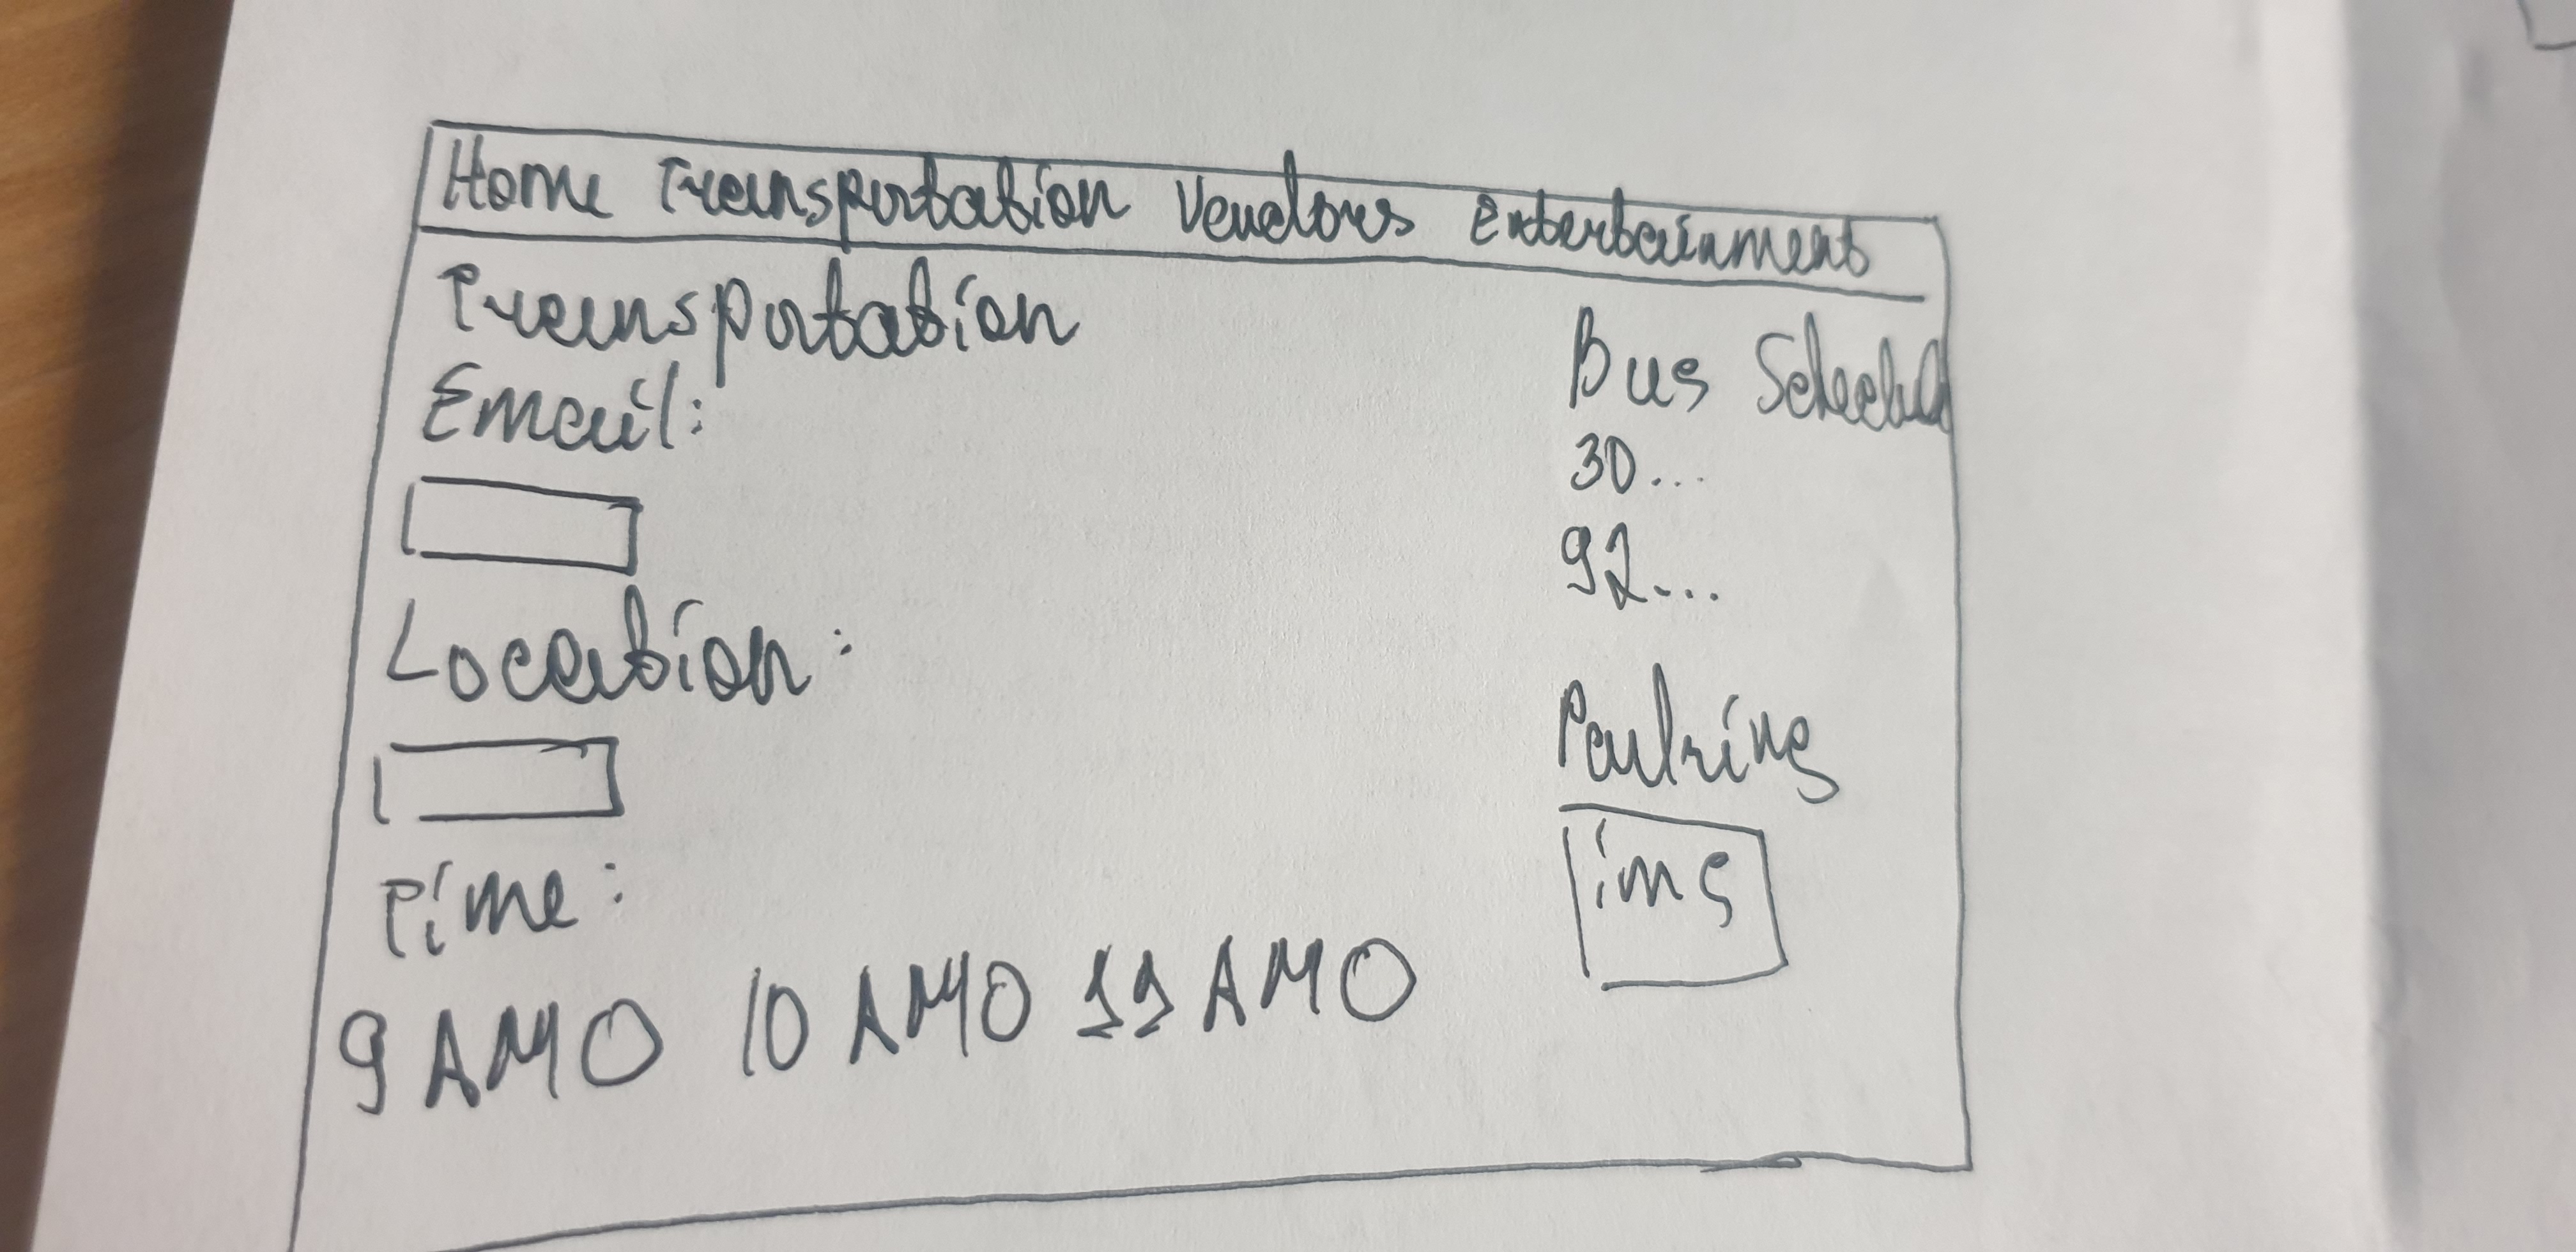 Home Transportation Vendors Entertainment
Transportation
Email:
Location:
Time:
9 AM 10 AM 11 AM
Bus Schedul
30...
92...
Parking
img